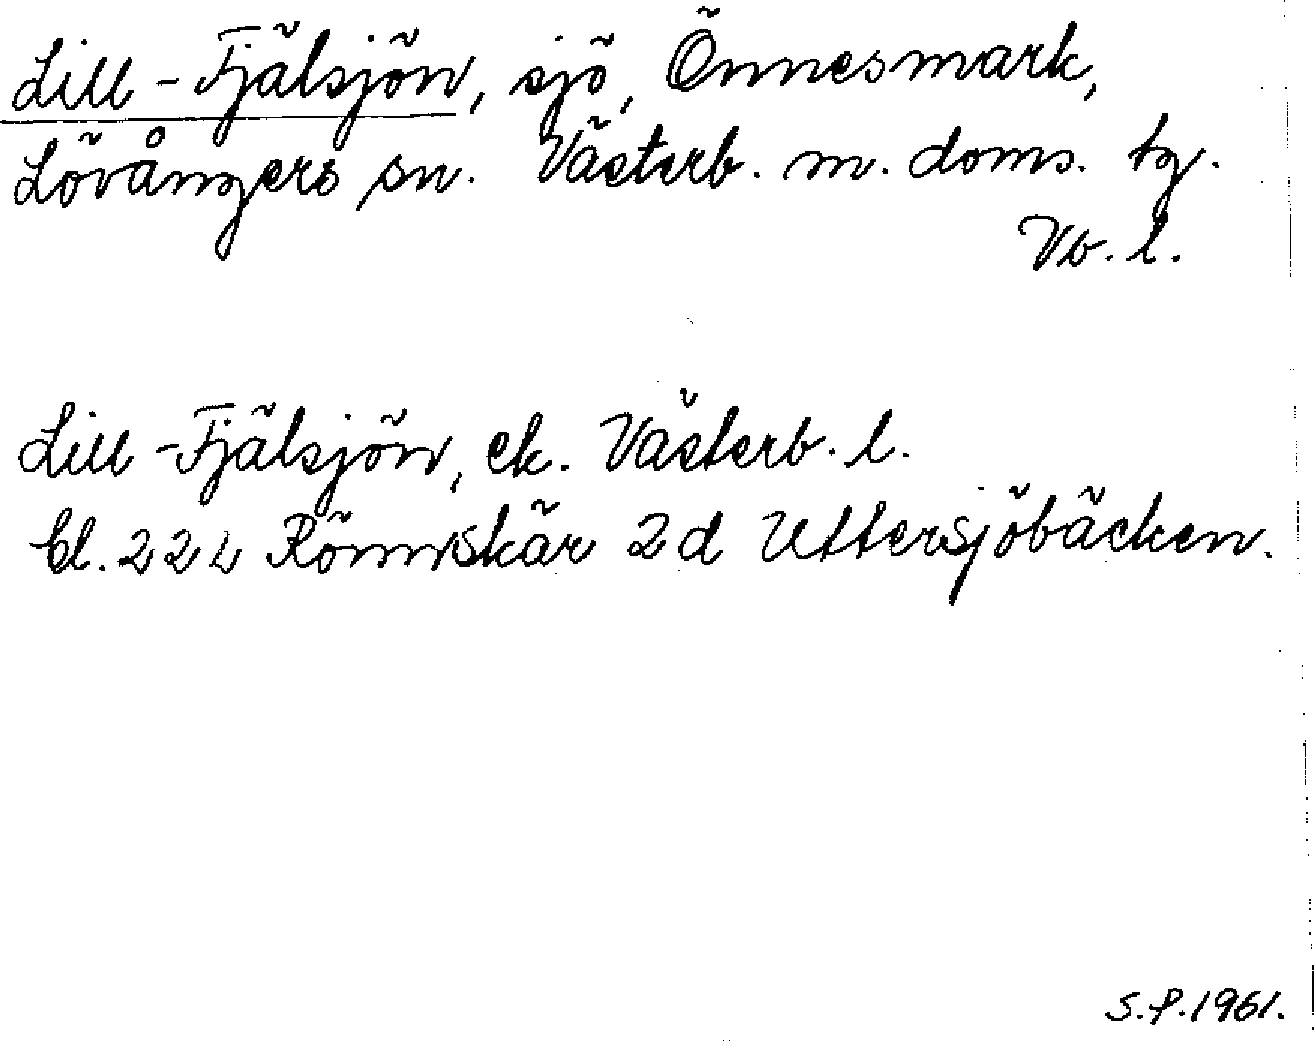 Lill-Fjälsjön, sjö, Önnesmark,
Lövångers sn. Västerb. m. doms. tg.
Vb. l.
Lill-Fjälsjön, ek. Västerb. l.
bl. 22 L Rönnskär 2d Uttersjöbäcken.
S.P.1961.